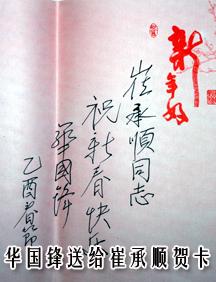 新年好
崔承順同志
祝新春快乐
華國鋒
乙酉春節
华国锋送给崔承顺贺卡